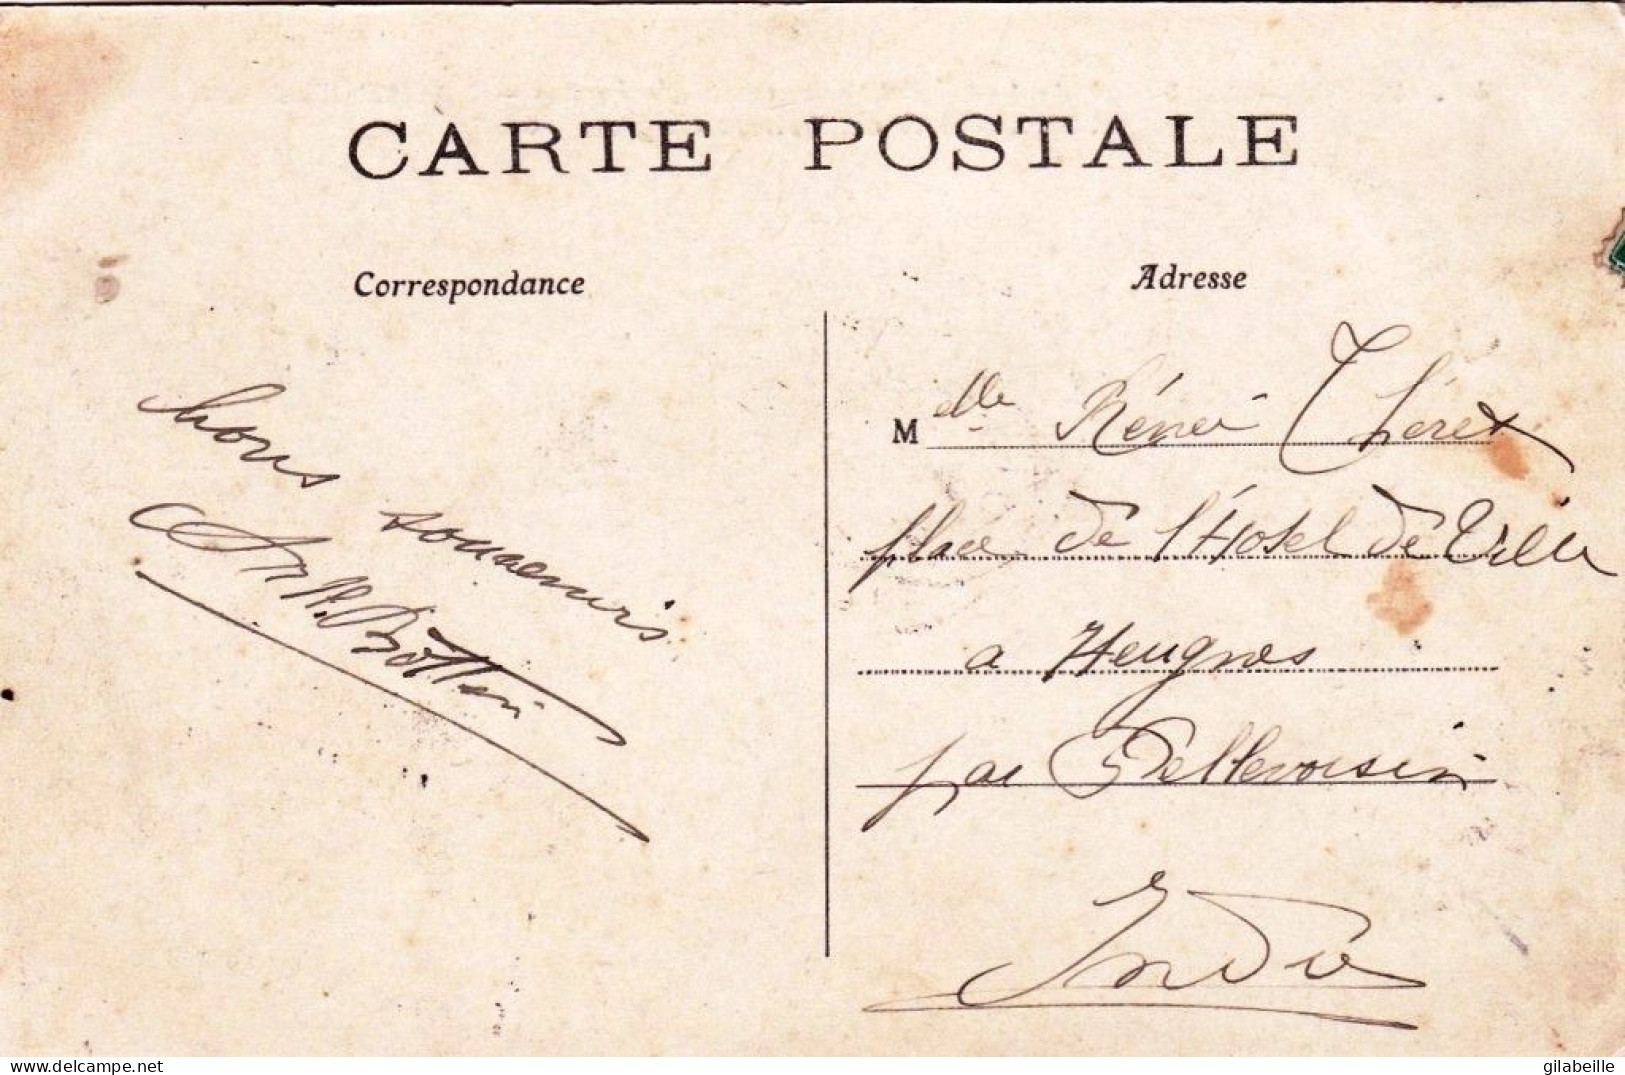 CARTE POSTALE
Correspondance
Adresse
bons
souvenirs
Melle Rénée Théret
place de l'Hotel de Ville
a Heugnes
par Pellevoisin
Indre
delcampe.net
gilabeille